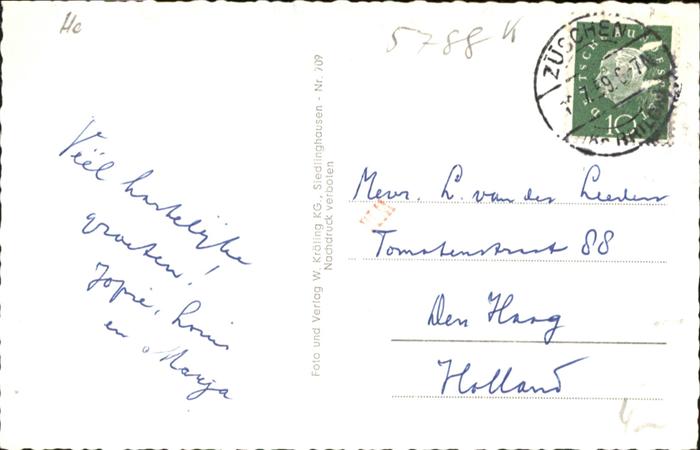 Hc
5788 K
ZÜSCHEN
10
Veel hartelijke
groeten!
Jopie, Louis
en Marja
Foto und Verlag W. Kröling KG., Siedlinghausen - Nr. 709
Nachdruck verboten
Mevr. L. van der Leeden
Tomatenstraat 88
Den Haag
Holland
4,-